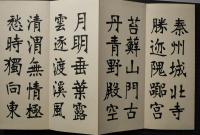 秦州城北寺
勝迹隗囂宮
苔蘚山門古
丹青野殿空
月明垂葉露
雲逐渡溪風
清渭無情極
愁時獨向東